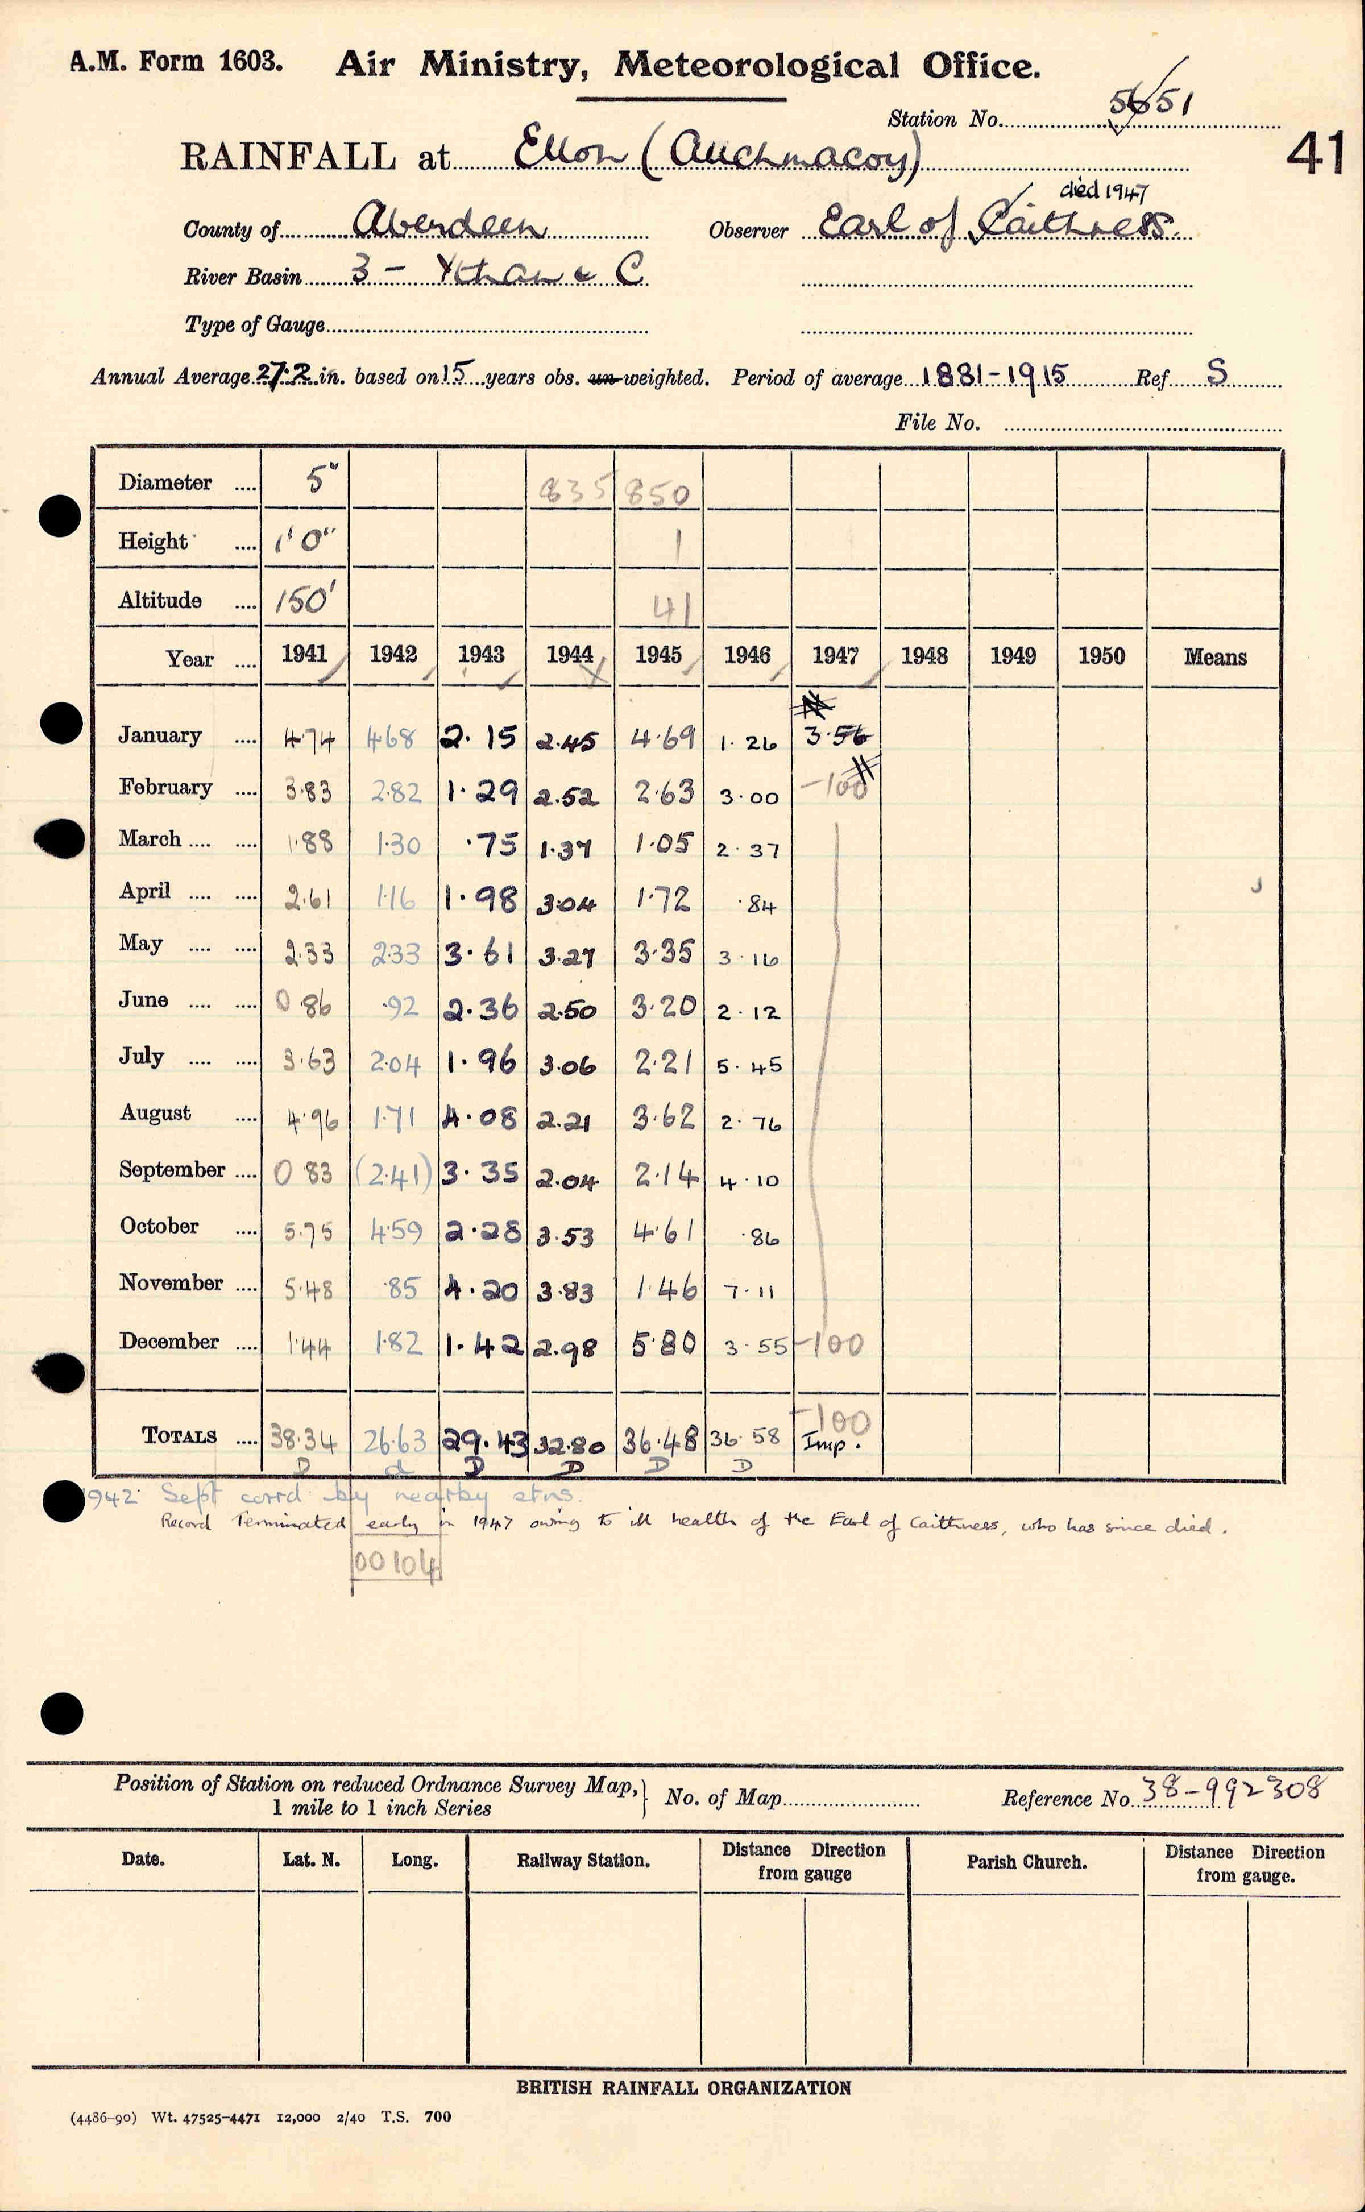 A.M. Form 1603. Air Ministry, Meteorological Office.
Station No. 5651
41
RAINFALL at Ellon (Auchmacoy)
died 1947
County of Aberdeen Observer Earl of Caithness.
River Basin 3 - Ythan & C
Type of Gauge
Annual Average 27.2 in. based on 15 years obs. un-weighted. Period of average 1881-1915 Ref S
File No.
Diameter .... 5" 835 850
Height .... 1'0" 1
Altitude .... 150' 41
Year .... 1941 1942 1943 1944 1945 1946 1947 1948 1949 1950 Means
January .... 4.74 4.68 2.15 2.45 4.69 1.26 3.56
February .... 3.83 2.82 1.29 2.52 2.63 3.00 -100
March .... .... 1.88 1.30 .75 1.37 1.05 2.37
April .... .... 2.61 1.16 1.98 3.04 1.72 .84
May .... .... 2.33 2.33 3.61 3.27 3.35 3.16
June .... .... 0.86 .92 2.36 2.50 3.20 2.12
July .... .... 3.63 2.04 1.96 3.06 2.21 5.45
August .... 4.96 1.71 4.08 2.21 3.62 2.76
September .... 0.83 (2.41) 3.35 2.04 2.14 4.10
October .... 5.75 4.59 2.28 3.53 4.61 .86
November .... 5.48 .85 4.20 3.83 1.46 7.11
December .... 1.44 1.82 1.42 2.98 5.80 3.55 -100
-100
TOTALS .... 38.34 26.63 29.43 32.80 36.48 36.58 Imp.
D d D D D D
1942 Sept corrd by nearby stns.
Record Terminated early in 1947 owing to ill health of the Earl of Caithness, who has since died.
00104
Position of Station on reduced Ordnance Survey Map, 1 mile to 1 inch Series } No. of Map Reference No. 38-992308
Date. Lat. N. Long. Railway Station. Distance Direction from gauge Parish Church. Distance Direction from gauge.
BRITISH RAINFALL ORGANIZATION
(4486-90) Wt. 47525-4471 12,000 2/40 T.S. 700